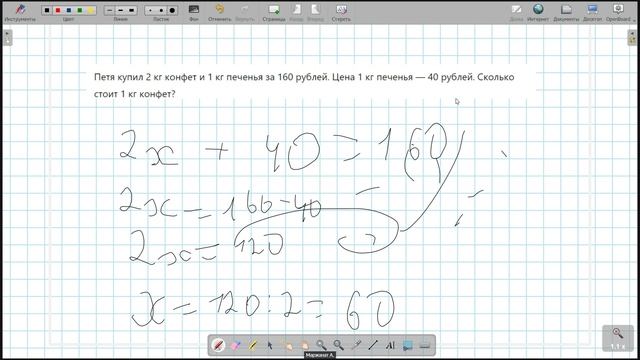 Инструменты Цвет Линии Ластик Фон Отменить Вернуть Страницы Назад Вперед Стереть Доска Интернет Документы Десктоп OpenBoard
Петя купил 2 кг конфет и 1 кг печенья за 160 рублей. Цена 1 кг печенья — 40 рублей. Сколько
стоит 1 кг конфет?
2x + 40 = 160
2x = 160-40
2x = 120
x = 120:2 = 60
Маржинат А.
1.1 x